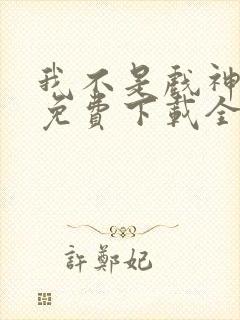 我不是戲神
免費下載全
許鄭妃